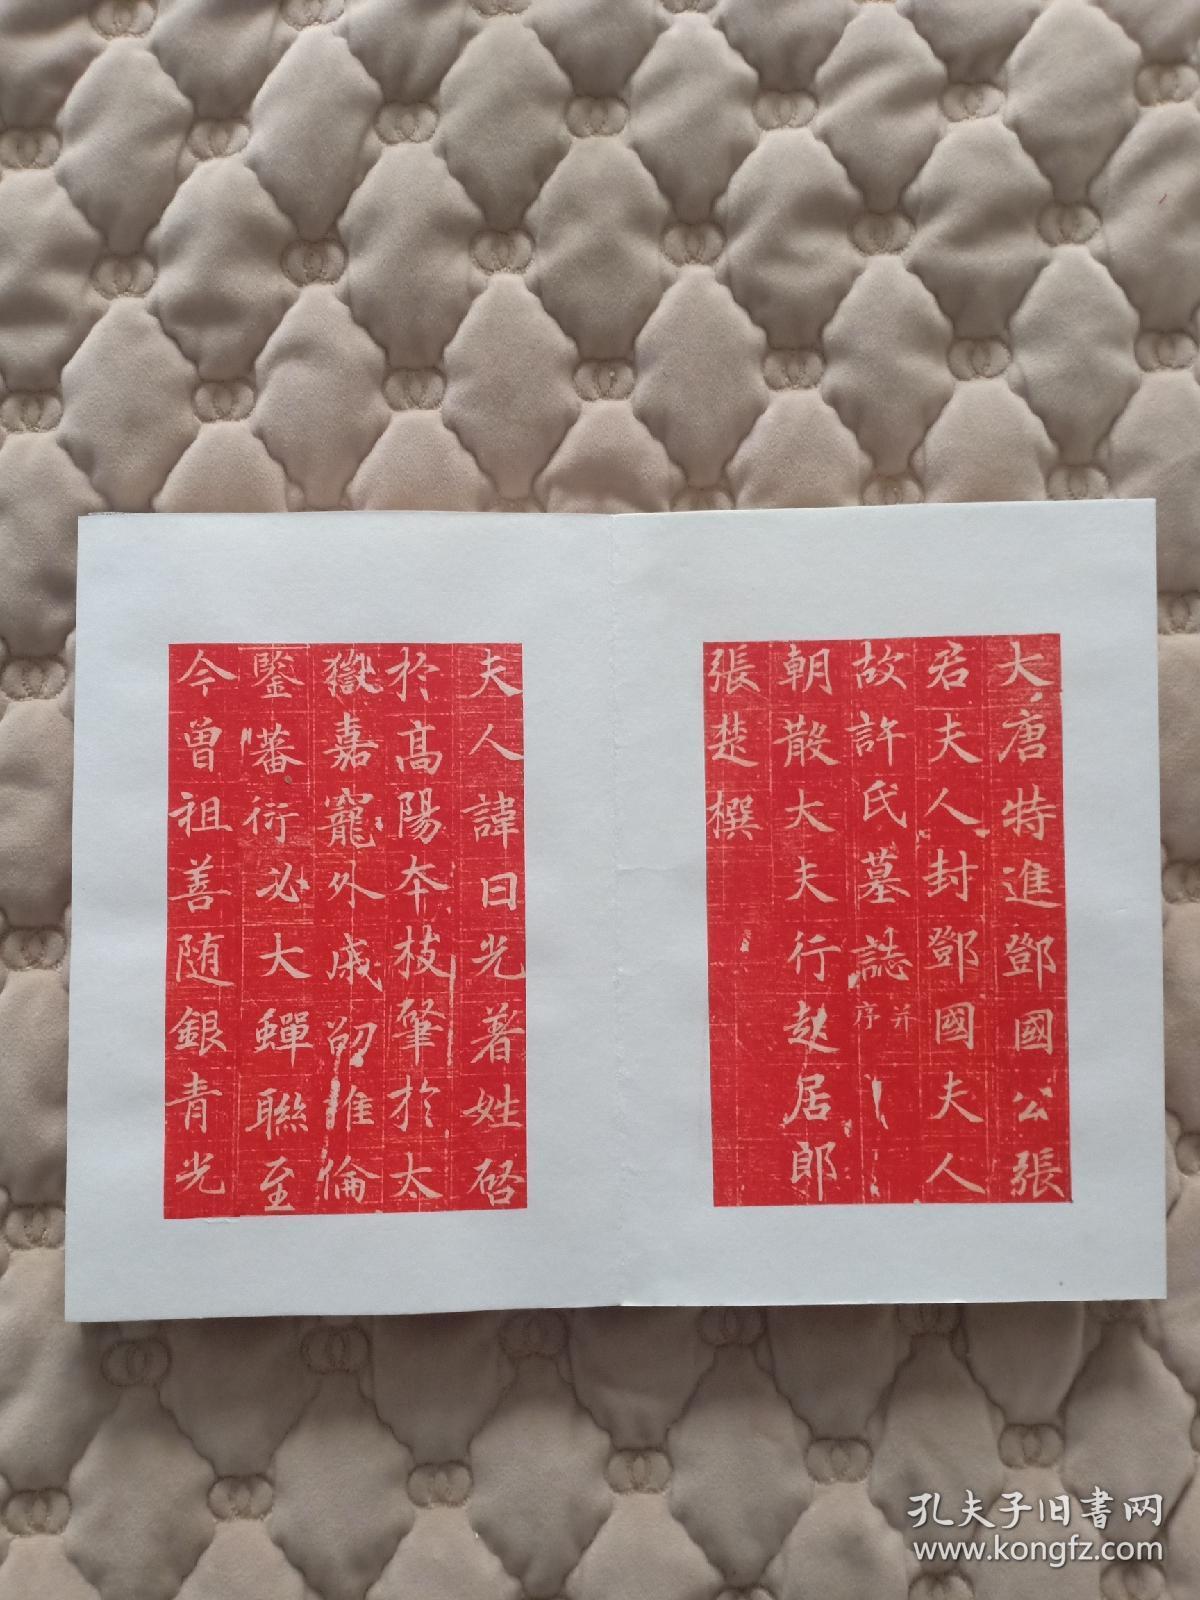 大唐特進鄧國公張
君夫人封鄧國夫人
故許氏墓誌并序
朝散大夫行起居郎
張楚撰
夫人諱日光著姓啓
於高陽本枝肇於太
嶽嘉寵外戚卲惟倫
鑒蕃衍必大蟬聯至
今曾祖善随銀青光
孔夫子旧書网
www.kongfz.com